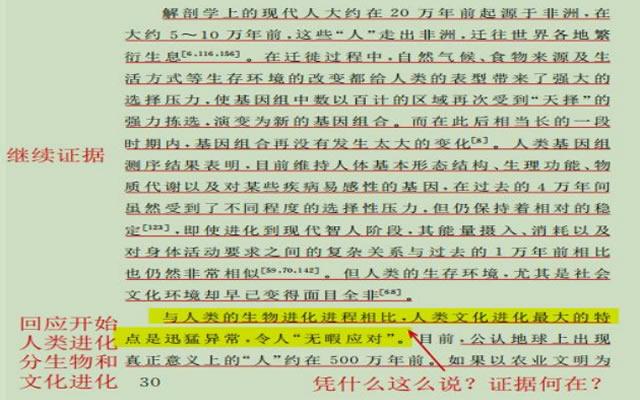 解剖学上的现代人大约在 20 万年前起源于非洲,在
大约 5～10 万年前,这些“人”走出非洲,迁往世界各地繁
衍生息[6,116,156]。在迁徙过程中,自然气候、食物来源及生
活方式等生存环境的改变都给人类的表型带来了强大的
选择压力,使基因组中数以百计的区域再次受到“天择”的
强力拣选,演变为新的基因组合。而在此后相当长的一段
时期内,基因组合再没有发生太大的变化[8]。人类基因组
测序结果表明,目前维持人体基本形态结构、生理功能、物
质代谢以及对某些疾病易感性的基因,在过去的 4 万年间
虽然受到了不同程度的选择性压力,但仍保持着相对的稳
定[123],即使进化到现代智人阶段,其能量摄入、消耗以及
对身体活动要求之间的复杂关系与过去的 1 万年前相比
也仍然非常相似[59,70,142]。但人类的生存环境,尤其是社会
文化环境却早已变得面目全非[68]。
与人类的生物进化进程相比,人类文化进化最大的特
点是迅猛异常,令人“无暇应对”。目前,公认地球上出现
真正意义上的“人”约在 500 万年前。如果以农业文明为
30
继续证据
回应开始
人类进化
分生物和
文化进化
凭什么这么说？证据何在？